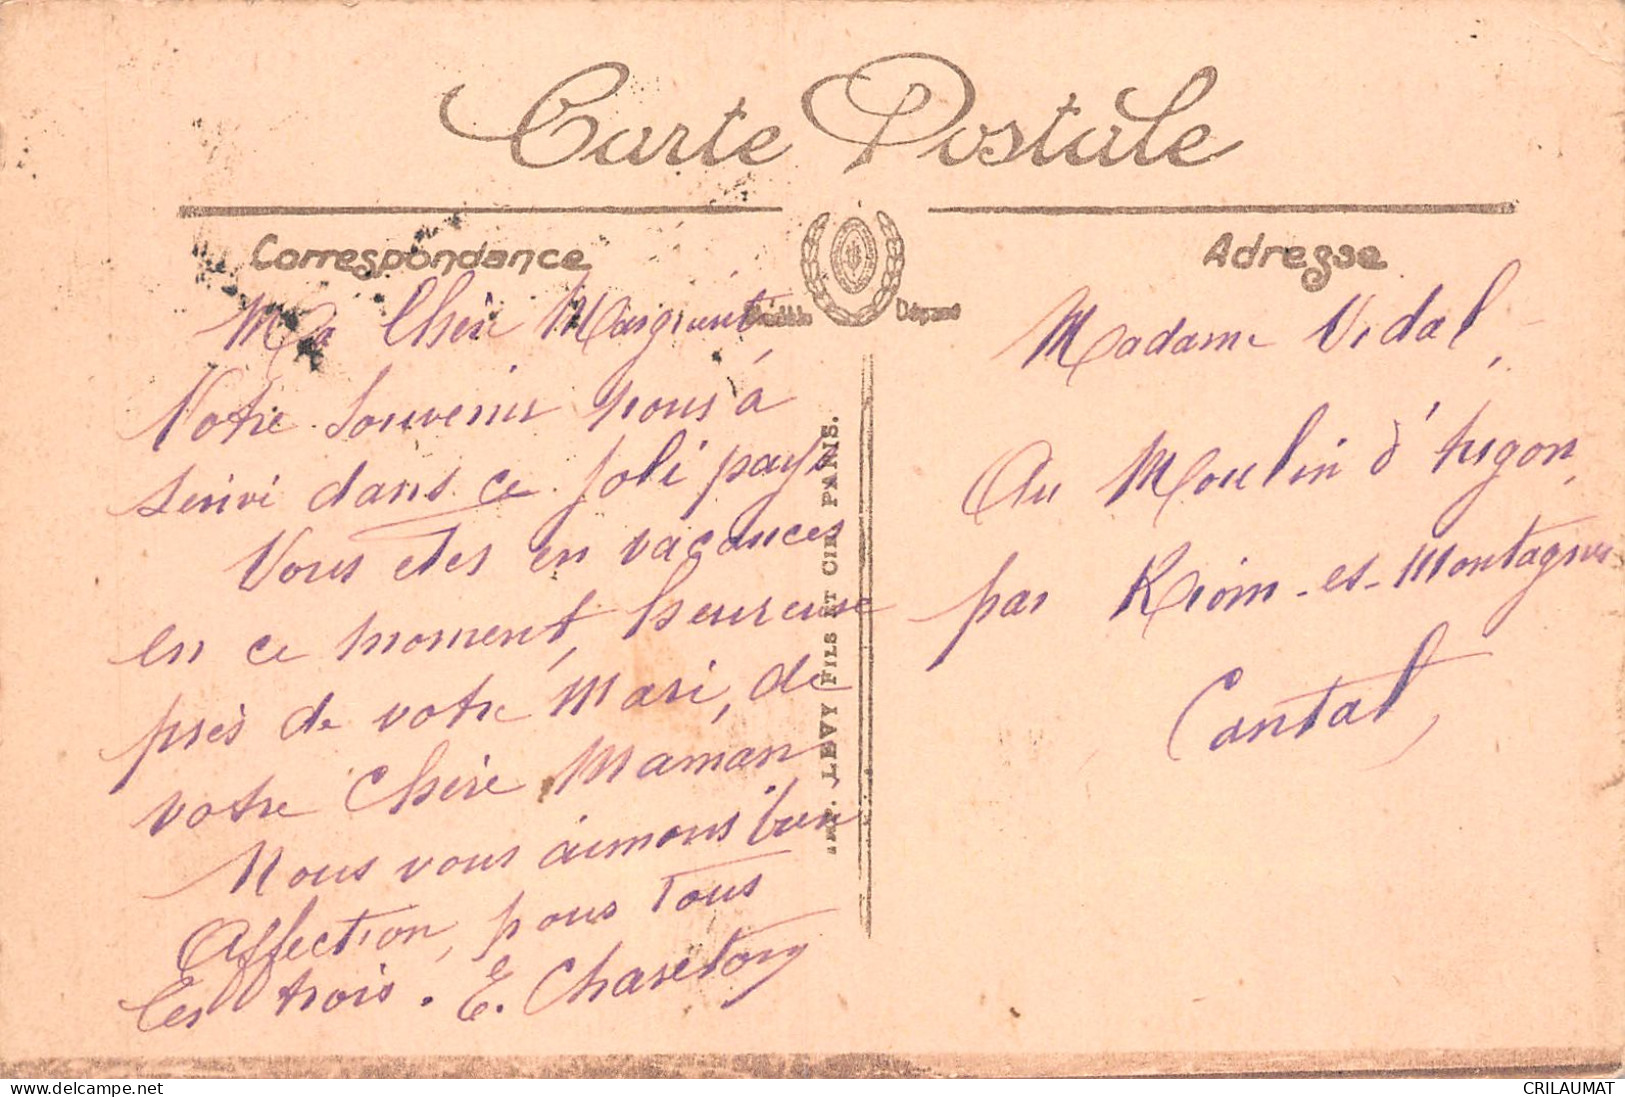 Carte Postale
Correspondance
Ma Chère Marguerite
Votre Souvenir nous à
suivi dans ce joli pays
Vous etes en vacances
en ce moment, heureuse
près de votre Mari, de
votre Chère Maman
Nous vous aimons bien
Affection, pous tous
les trois. E.
Adresse
Modèle Déposé
Madame Vidal,
Au Moulin d'
par Riom-es-Montagnes
Cantal,
IMP. LEVY FILS ET CIE, PARIS.
CRILAUMAT